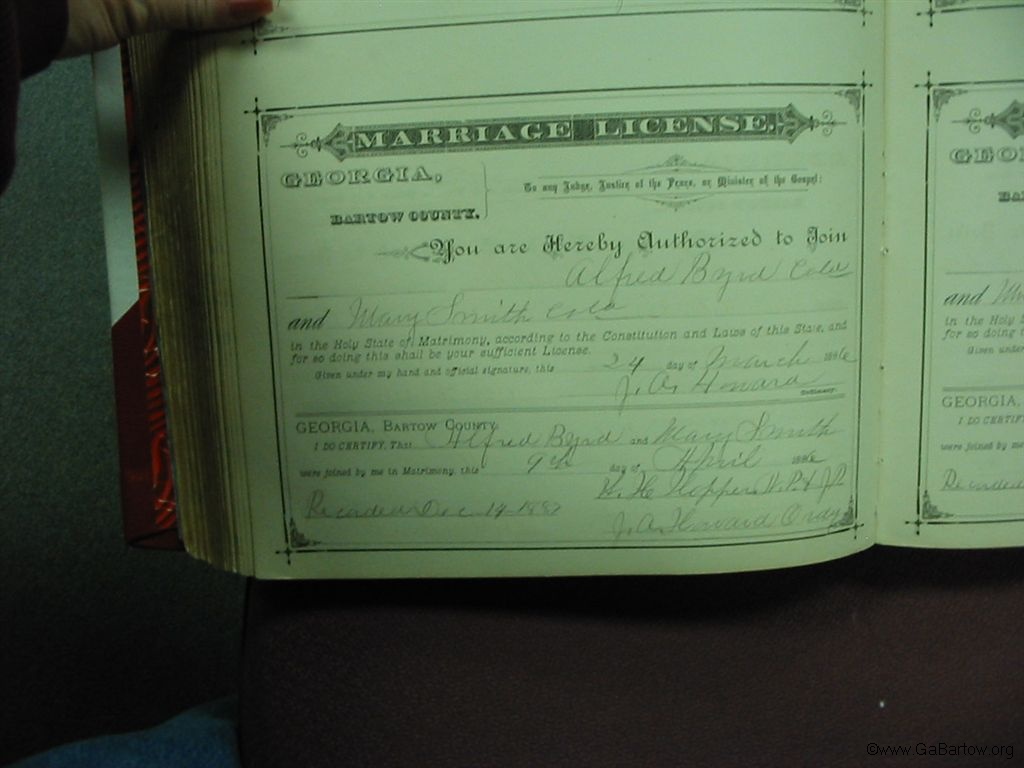 MARRIAGE LICENSE.
GEORGIA,
BARTOW COUNTY.
To any Judge, Justice of the Peace, or Minister of the Gospel:
You are Hereby Authorized to Join
Alfred Byrd Cold
and Mary Smith Cold
in the Holy State of Matrimony, according to the Constitution and Laws of this State, and
for so doing this shall be your sufficient License.
Given under my hand and official signature, this 24 day of March 1886
J. A. Howard
Ordinary.
GEORGIA, BARTOW COUNTY
I DO CERTIFY, That Alfred Byrd and Mary Smith
were joined by me in Matrimony, this 9th day of April 1886
H. H. Hopper N. P. & J. P.
Recorded Dec 14 1887
J. A. Howard Ordy
GEO
BA
and M
in the Holy S
for so doing
Given under
GEORGIA,
I DO CERTIFY
were joined by
Recorded
©www.GaBartow.org